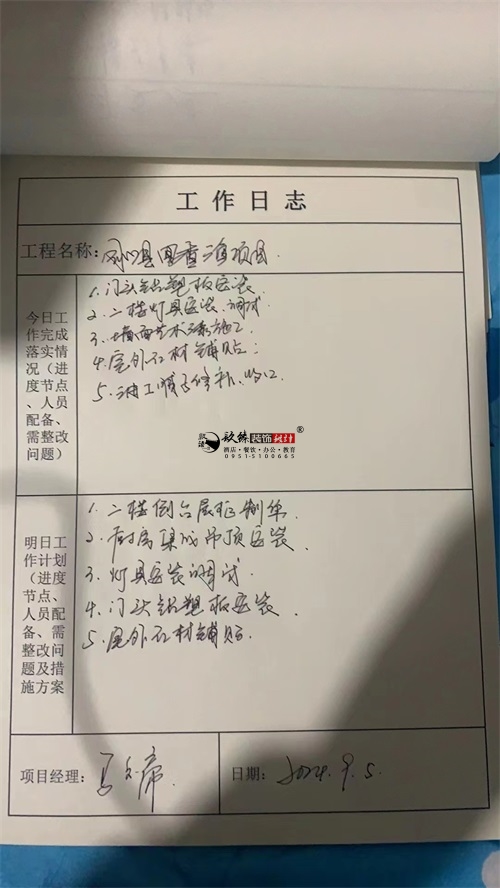 工作日志
工程名称:
今日工作完成落实情况(进度节点、人员配备、需整改问题)
1. 门头铝塑板安装.
2. 二楼灯具安装、调试
3. 墙面艺术漆施工
4. 屋外石材铺贴;
5. 油工 修补、收口
玖臻装饰设计®
酒店·餐饮·办公·教育
0951-5100665
明日工作计划(进度节点、人员配备、需整改问题及措施方案
1. 二楼
2. 厨房集成吊顶安装、
3. 灯具安装调试.
4. 门头铝塑板安装、
5. 屋外石材铺贴.
项目经理: 马
日期: 2024.9.5.